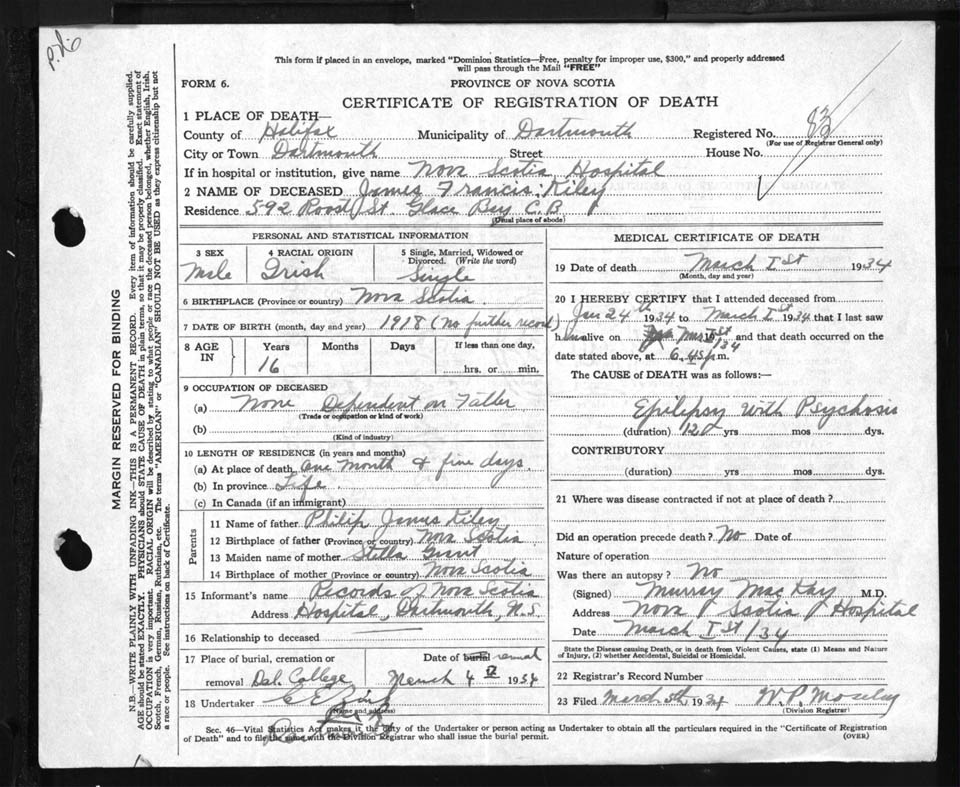 This form if placed in an envelope, marked "Dominion Statistics—Free, penalty for improper use, $300," and properly addressed
will pass through the Mail "FREE"
FORM 6.
PROVINCE OF NOVA SCOTIA
CERTIFICATE OF REGISTRATION OF DEATH
1 PLACE OF DEATH—
County of Halifax Municipality of Dartmouth Registered No. 83
(For use of Registrar General only)
City or Town Dartmouth Street House No.
If in hospital or institution, give name Nova Scotia Hospital
2 NAME OF DECEASED James Francis Riley
Residence 592 St Glace Bay C.B
(Usual place of abode)
PERSONAL AND STATISTICAL INFORMATION
3 SEX Male
4 RACIAL ORIGIN Irish
5 Single, Married, Widowed or Divorced. (Write the word) Single
6 BIRTHPLACE (Province or country) Nova Scotia.
7 DATE OF BIRTH (month, day and year) 1918 (No further record)
8 AGE IN Years Months Days If less than one day,
16 hrs. or min.
9 OCCUPATION OF DECEASED
(a) None Dependent on Father
(Trade or occupation or kind of work)
(b)
(Kind of industry)
10 LENGTH OF RESIDENCE (in years and months)
(a) At place of death One month & five days.
(b) In province Life.
(c) In Canada (if an immigrant)
Parents
11 Name of father Philip James Riley
12 Birthplace of father (Province or country) Nova Scotia
13 Maiden name of mother Stella Grant
14 Birthplace of mother (Province or country) Nova Scotia
15 Informant's name Records of Nova Scotia
Address Hospital, Dartmouth, N.S.
16 Relationship to deceased
17 Place of burial, cremation or Date of burial removal
removal Dal. College March 4 1934
18 Undertaker
(Name and address)
MEDICAL CERTIFICATE OF DEATH
19 Date of death March Ist 1934
(Month, day and year)
20 I HEREBY CERTIFY that I attended deceased from
Jan 24th 1934 to March Ist 1934 that I last saw
him alive on Mar Ist 1934 and that death occurred on the
date stated above, at 6.45 p.m.
The CAUSE of DEATH was as follows:—
Epilepsy with Psychosis
(duration) 12 yrs mos dys.
CONTRIBUTORY
(duration) yrs mos dys.
21 Where was disease contracted if not at place of death?
Did an operation precede death? No Date of
Nature of operation
Was there an autopsy? No
(Signed) Murray MacKay M.D.
Address Nova Scotia Hospital
Date March Ist/34
State the Disease causing Death, or in death from Violent Causes, state (1) Means and Nature
of Injury, (2) whether Accidental, Suicidal or Homicidal.
22 Registrar's Record Number
23 Filed March 5th 1934
(Division Registrar)
Sec. 46—Vital Statistics Act makes it the duty of the Undertaker or person acting as Undertaker to obtain all the particulars required in the "Certificate of Registration
of Death" and to file the same with the Division Registrar who shall issue the burial permit.
(OVER)
MARGIN RESERVED FOR BINDING
N.B.—WRITE PLAINLY WITH UNFADING INK—THIS IS A PERMANENT RECORD. Every item of information should be carefully supplied.
AGE should be stated EXACTLY. PHYSICIANS should STATE CAUSE OF DEATH in plain terms, so that it may be properly classified. Exact statement of
OCCUPATION is very important. RACIAL ORIGIN will be described by stating to what people or race the deceased person belonged, whether English, Irish,
Scotch, French, German, Russian, Ruthenian, etc. The terms "AMERICAN" or "CANADIAN" SHOULD NOT BE USED as they express citizenship but not
a race or people. See instructions on back of Certificate.